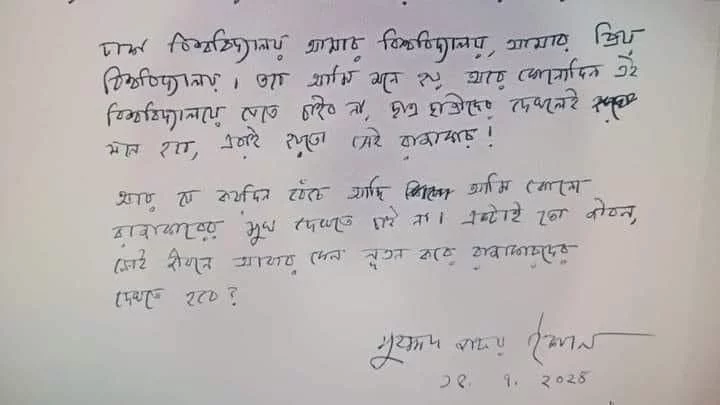 ঢাকা বিশ্ববিদ্যালয় আমার বিশ্ববিদ্যালয়, আমার প্রিয়
বিশ্ববিদ্যালয়। তবে আমি মনে হয় আর কোনোদিন এই
বিশ্ববিদ্যালয়ে যেতে চাইব না, ছাত্র ছাত্রীদের দেখলেই
মনে হবে, এরাই হয়তো সেই রাজাকার!
আর যে কয়দিন বেঁচে আছি আমি কোনো
রাজাকারের মুখ দেখতে চাই না। একটাই তো জীবন,
সেই জীবনে আবার কেন নূতন করে রাজাকারদের
দেখতে হবে?
মুহম্মদ জাফর ইকবাল